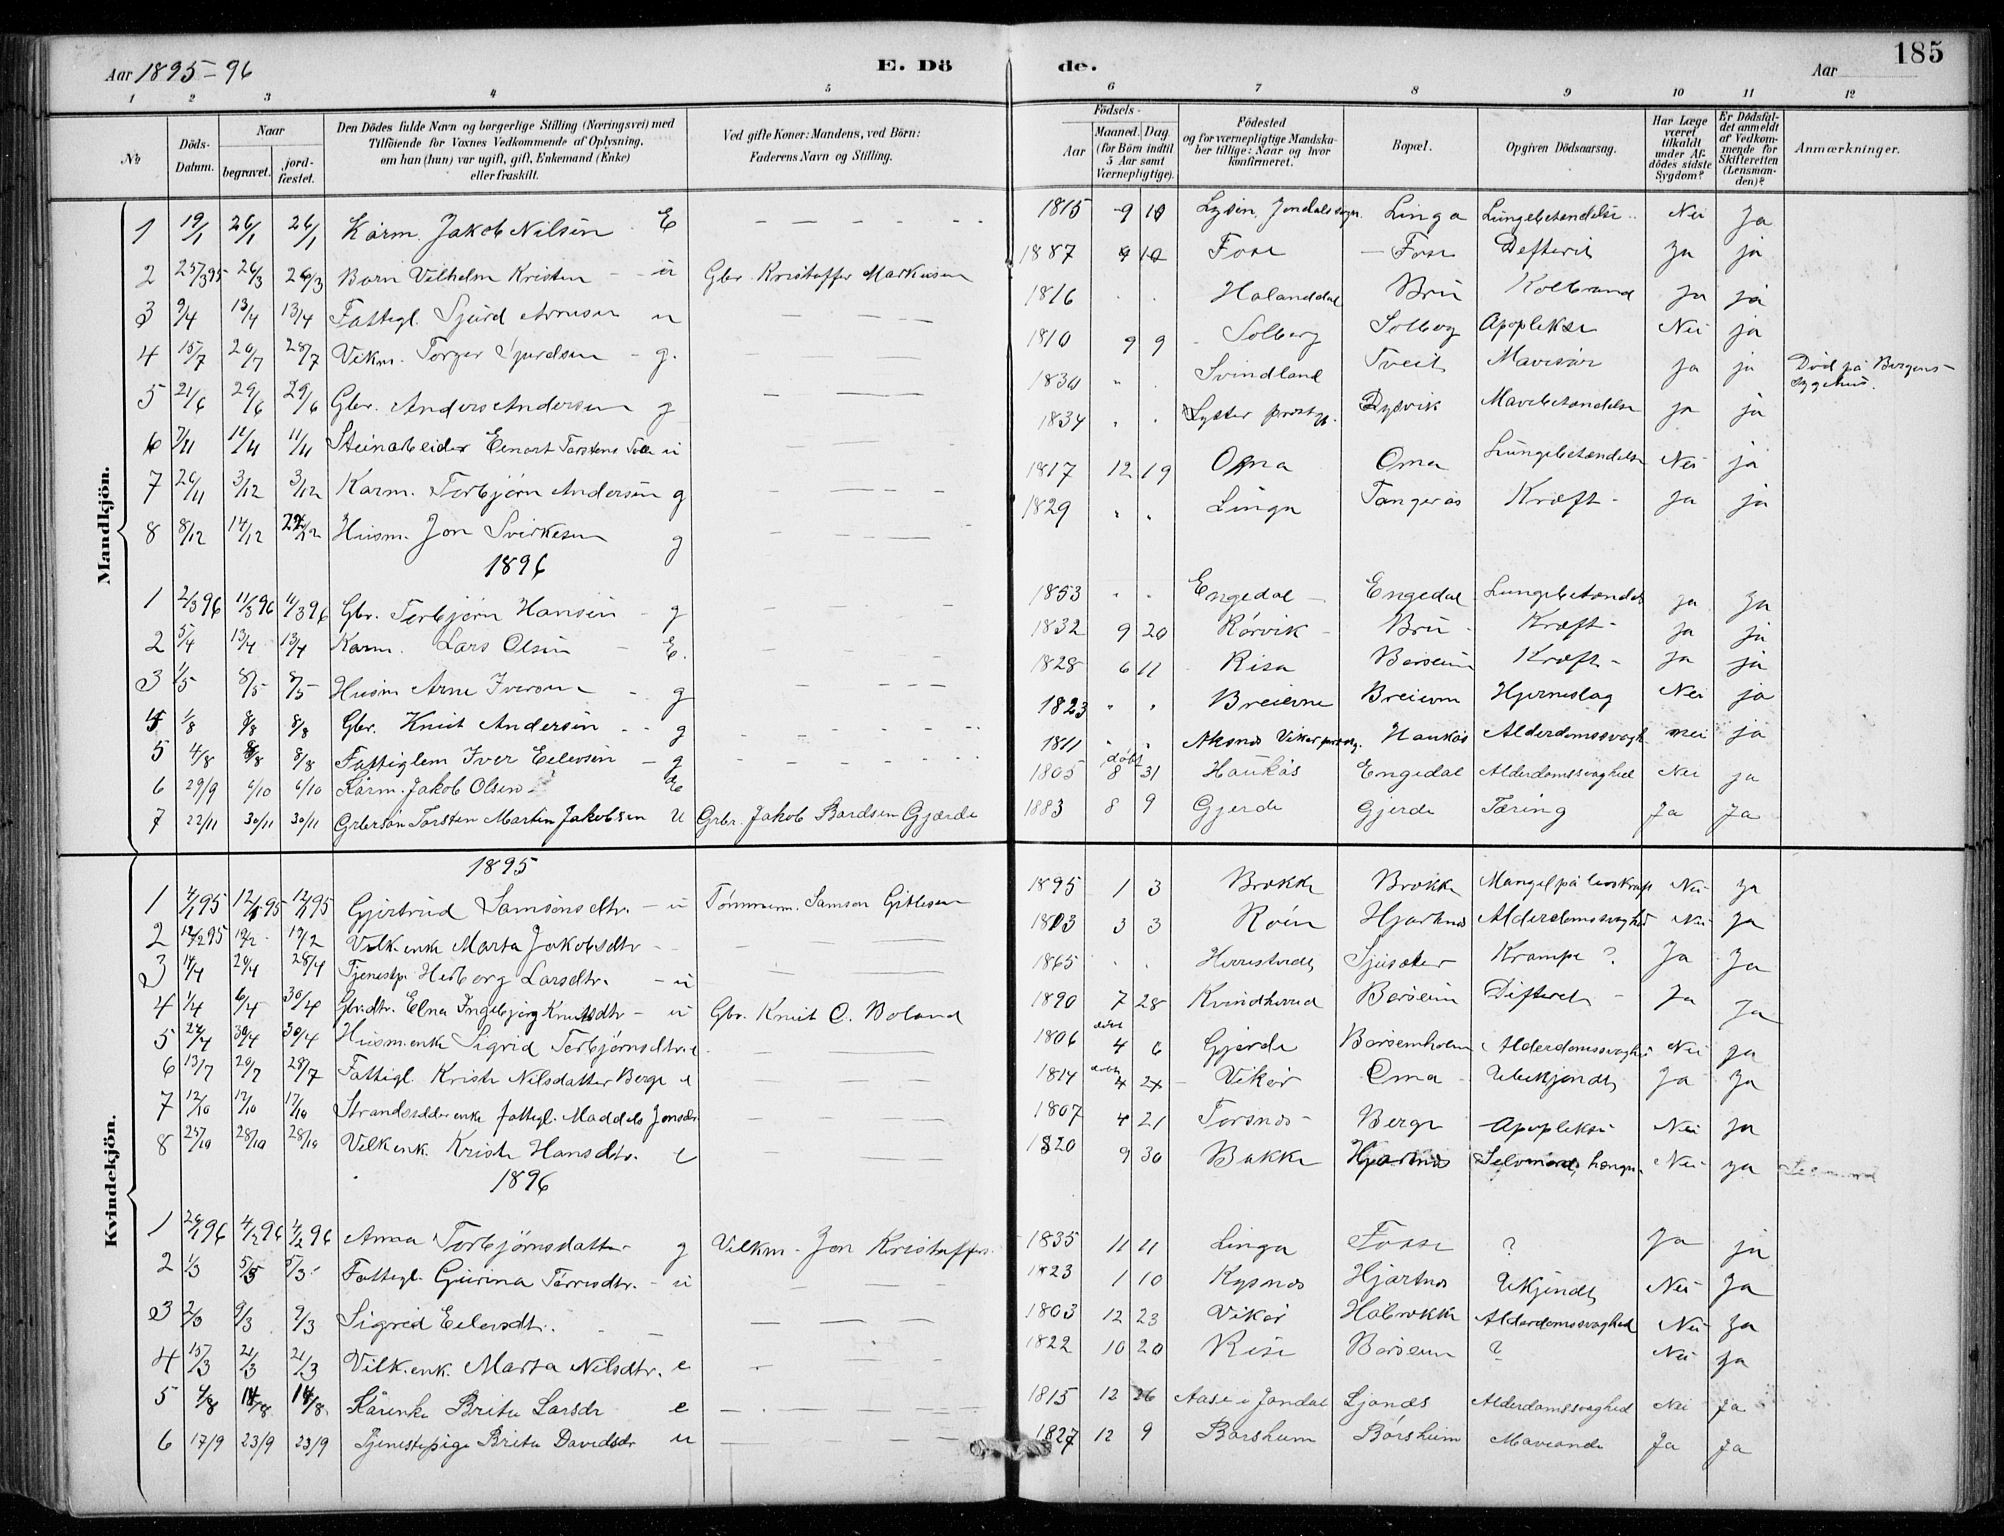 Aar 1895-96 E. Dö de. Aar 185
1 2 3 4 5 6 7 8 9 10 11 12
No Döds-Datum. Naar begravet. jordfæstet. Den Dödes fulde Navn og borgerlige Stilling (Næringsvei) med Tilföiende for Voxnes Vedkommende af Oplysning, om han (hun) var ugift, gift, Enkemand (Enke) eller fraskilt. Ved gifte Koner: Mandens, ved Börn: Faderens Navn og Stilling. Födsels- Aar Maaned. Dag. (for Börn indtil 5 Aar samt Værnepligtige). Födested og for værnepligtige Mandskaber tillige: Naar og hvor konfirmeret. Bopæl. Opgiven Dödsaarsag. Har Læge været tilkaldt under Afdödes sidste Sygdom? Er Dödsfaldet anmeldt af Vedkommende for Skifteretten (Lensmanden)? Anmærkninger.
Mandkjön.
1 19/1 26/1 26/1 Kårm. Jakob Nilsen E 1815 9 10 Jondals Linga Lungebetændelse Nei Ja
2 25/3 95 26/3 26/3 Barn Vilhelm Kristen u Gbr. Kristoffer Markusen 1887 9 12 Fosse Fosse Defterit Ja ja
3 9/4 13/4 13/4 Fattigl. Sjurd Arnesen u 1816 Holanddal Bru Kolbrand Ja ja
4 15/7 20/7 28/7 Vikm. Torger Sjurdsen g. 1810 9 9 Solberg Solberg Apopleksi Nei ja
5 21/6 29/6 29/6 Gbr. Anders Andersen g 1830 Svindland Tveit Mavesår Ja ja Död på Bergens sygehus.
6 7/11 11/11 11/11 Steinarbeider Einart Torstens u 1834 Lyster prestg. Dysvik Mavebetændelse ja ja
7 26/11 3/12 3/12 Karm. Torbjørn Andersen g 1817 12 19 Oma Oma Lungebetændelse Nei ja
8 8/12 14/12 22/12 Husm. Jon Sverkesen g 1829 Linga Tangerås Kræft ja ja
1896
1 2/3 96 11/3 96 11/3 96 Gbr. Torbjørn Hansen g 1853 Engedal Engedal Lungebetændel ja Ja
2 5/4 13/4 13/4 Karm. Lars Olsen E. 1832 9 20 Rørvik Bru Kræft ja ja
3 1/5 8/5 8/5 Husm Arne Iversen g 1828 6 11 Risa Børseim Kræft ja ja
4 1/8 8/8 8/8 Gbr. Knut Andersen g 1823 Breievne Breievn Hjerneslag Nei ja
5 4/8 8/8 8/8 Fattiglem Iver Eilevsen g 1811 Aksnes Vikør prestg. Haukås Alderdomssvagh nei ja
6 29/9 6/10 6/10 Kårm. Jakob Olsen 1805 døbt 8 31 Haukås Engedal Alderdomssvaghed Nei ja
7 22/11 30/11 30/11 Grbersøn Torsten Martin Jakobsen U Grbr. Jakob Bardsen Gjærde 1883 8 9 Gjerde Gjerde Tæring Ja Ja
Kvindekjön.
1895
1 4/1 95 12/1 95 12/1 95 Gjertrud Samsonsdtr. u Tömmerm. Samson Gitlesen 1895 1 3 Brokke Brokke Mangel på livskraft Nei ja
2 12/2 95 19/2 19/2 Vilk.enke Marta Jakobsdtr 1813 3 3 Røen Hjartnes Alderdomssvaghed Nei Ja
3 14/4 20/4 28/4 Tjenestp. Herborg Larsdtr. u 1865 Sjusæter Krampe? Ja Ja
4 1/4 6/4 30/4 Gbr.dtr. Elna Ingebjørg Knutsdtr u Gbr. Knut O. Boland 1890 7 28 Kvindherred Børseim Difterit Ja Ja
5 24/4 30/4 30/4 Husm.enke Sigrid Torbjørnsdtr. e 1806 4 6 Gjerde Børsemholm Alderdomssvaghed Nei ja
6 13/7 20/7 28/7 Fattigl. Kristi Nilsdatter Berge e 1814 4 24 Vikør Oma Ubekjendt Ja Ja
7 12/10 17/10 17/10 Strandsidderenke fattigl. Maddele Jonsdtr 1807 4 21 Torsnes Berge Apopleksi Nei Ja
8 25/10 28/10 28/10 Vilkenk. Kristi Hansdtr. e 1820 9 30 Bakke Hjartnes Selvmord, hængn. Nei ja Selvmord
1896
1 26/1 96 4/2 96 4/2 96 Anna Torbjørnsdatter g Vilkm. Jon Kristoffers. 1835 11 11 Linga Fosse ? Ja ja
2 1/3 5/3 5/3 Fattigl. Gurina Tørresdtr. u 1823 1 10 Kysnes Hjartnes Ukjendt Nei Ja
3 2/3 9/3 9/3 Sigrid Eilevsdtr. 1803 12 23 Vikør Halbrekke Alderdomssvaghed Nei Ja
4 15/3 21/3 21/3 Vilk.enk. Marta Nilsdtr. e 1822 10 20 Rise Børseim ? Nei ja
5 4/8 14/8 14/8 Kårenke Brita Larsdr e 1815 12 26 Aase i Jondal Ljonås Alderdomssvaghed Nei ja
6 17/9 23/9 23/9 Tjenestepige Brita Davidsdr u 1827 12 9 Børsheim Børsheim Maveonde Ja Ja